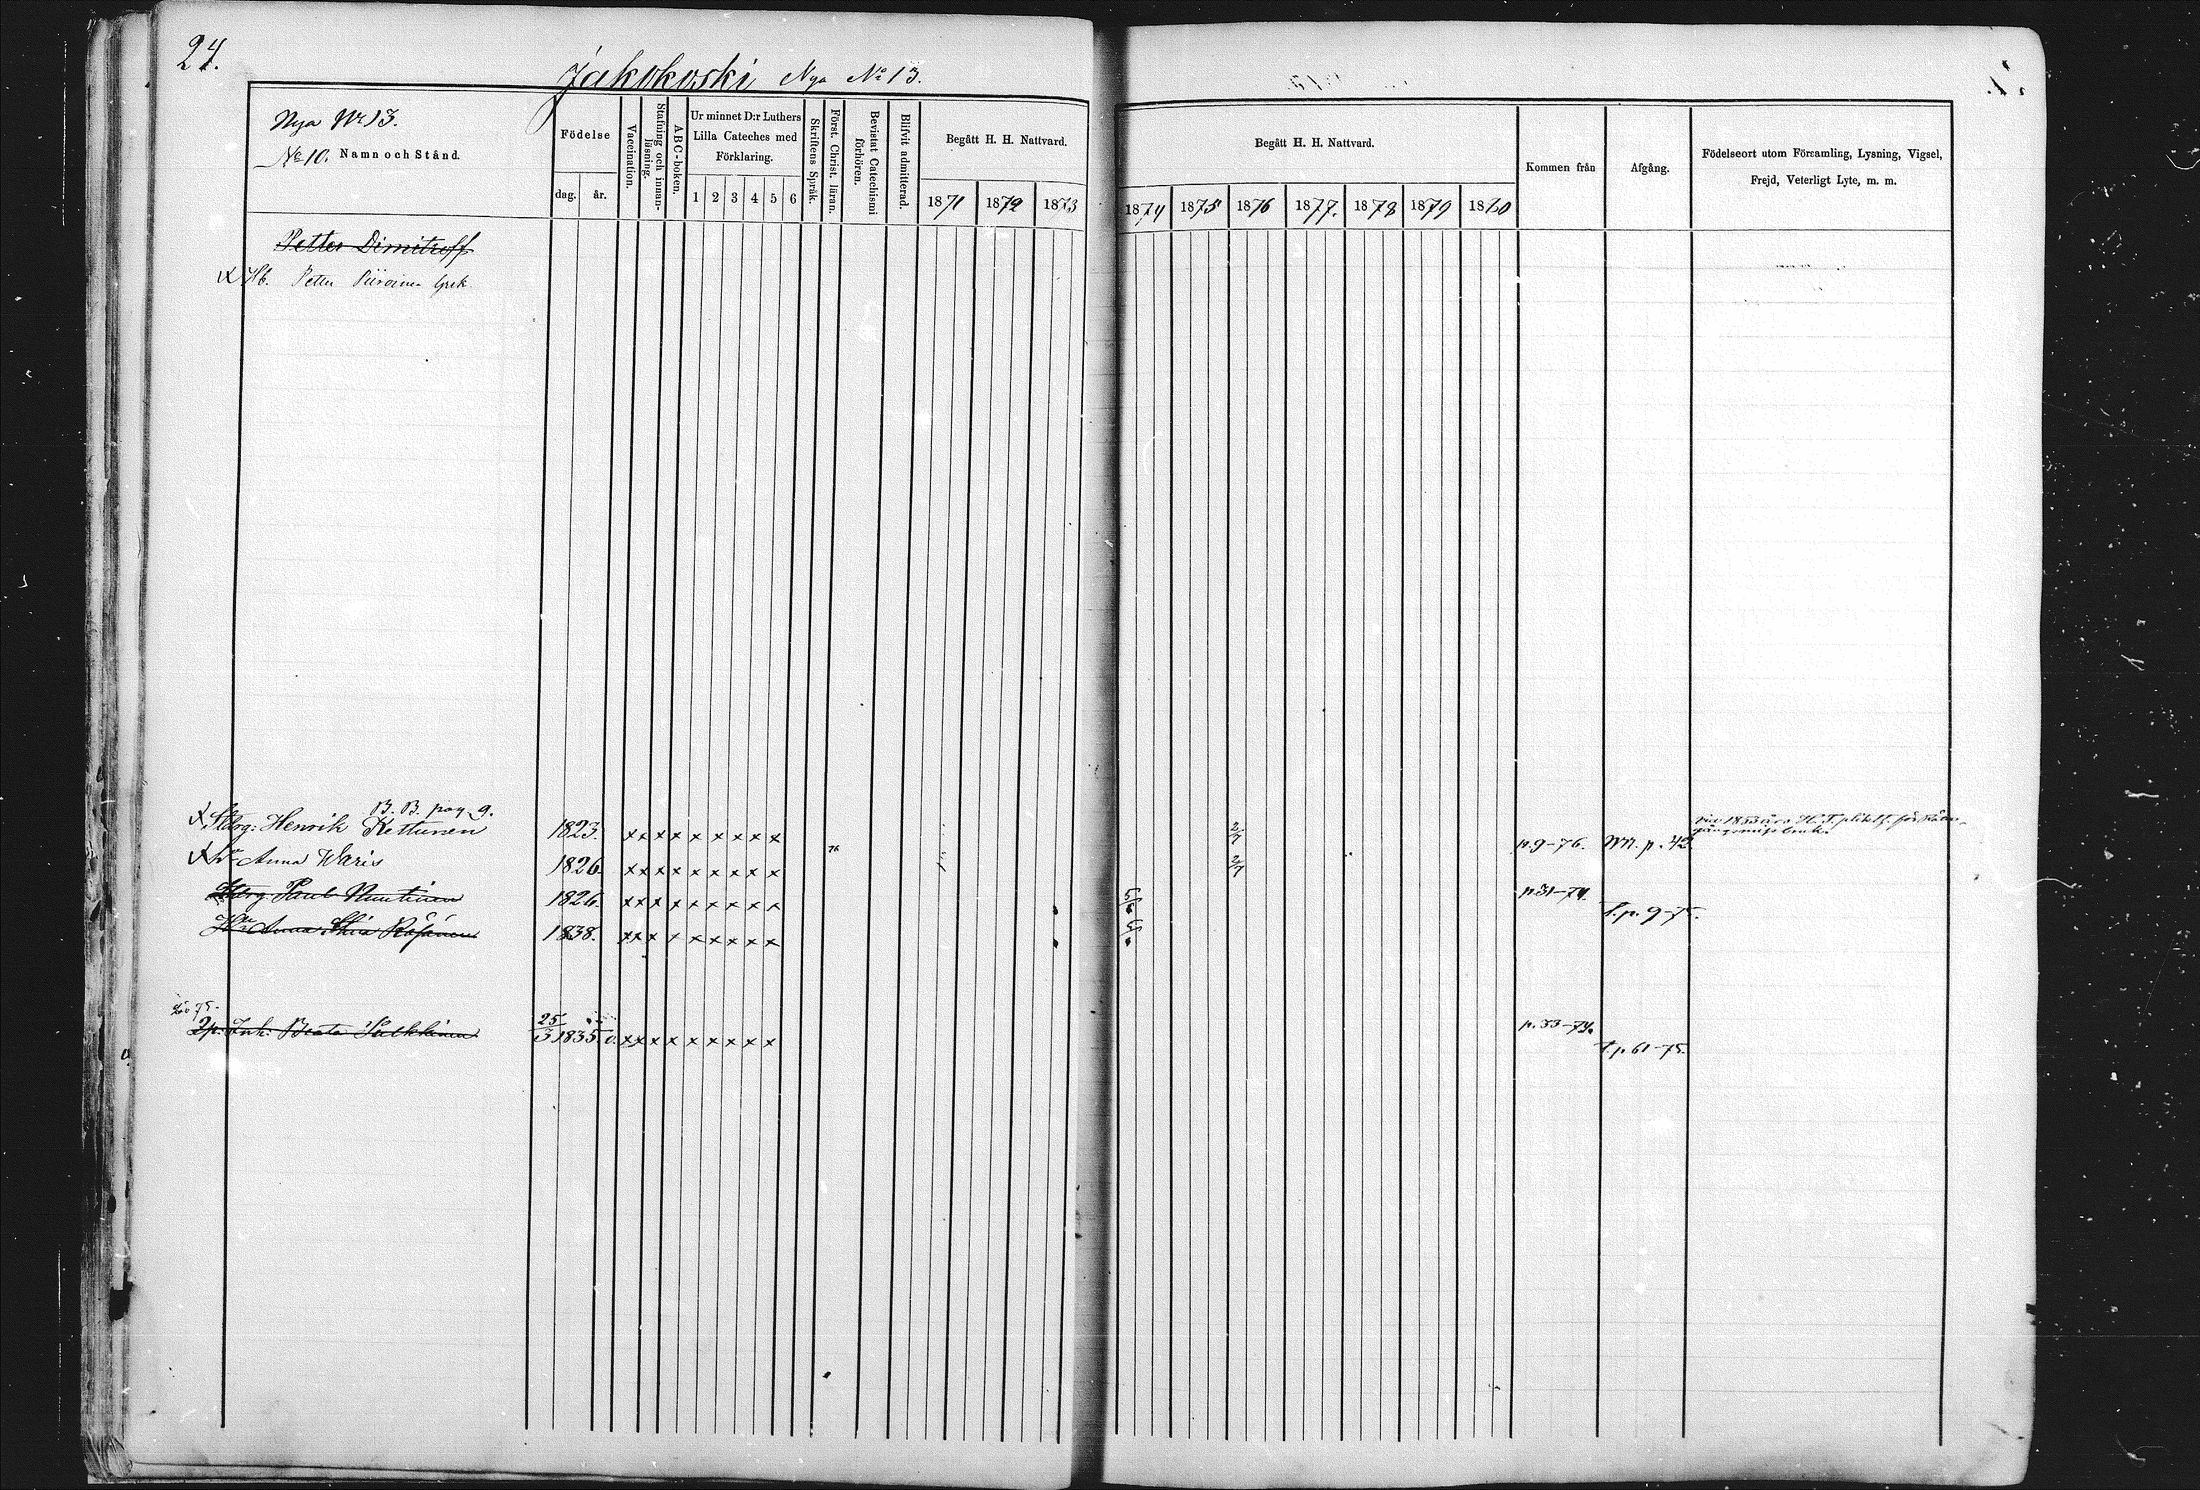 24.
Jakokoski Nya No 13.
Nya No 13.
No 10. Namn och Stånd.
Födelse
dag. år.
Vaccination.
Stafning och innanläsning.
ABC-boken.
Ur minnet D:r Luthers
Lilla Cateches med
Förklaring.
1 2 3 4 5 6
Skriftens Språk.
Först. Christ. läran.
Bevistat Catechismi förhören.
Blifvit admitterad.
Begått H. H. Nattvard.
1871 1872 1873
Begått H. H. Nattvard.
1874 1875 1876 1877. 1878 1879 1880
Kommen från
Afgång.
Födelseort utom Församling, Lysning, Vigsel,
Frejd, Veterligt Lyte, m. m.
Petter Dimitroff
Hb. Petter Piiroinen Grek
B. B. pag. 9.
Henrik Kettunen 1823. x x x x x x x x x 2/7 p. 9-76. p. 42
Anna Waris 1826. x x x x x x x x x 2/7
Paul Nuutinen 1826. x x x x x x x x x p. 31-74. p. 9-75.
Anna Räsänen 1838. x x x x x x x x x
Inh. Beata 25/3 1835. x x x x x x x x p. 33-74.
p. 61-75.